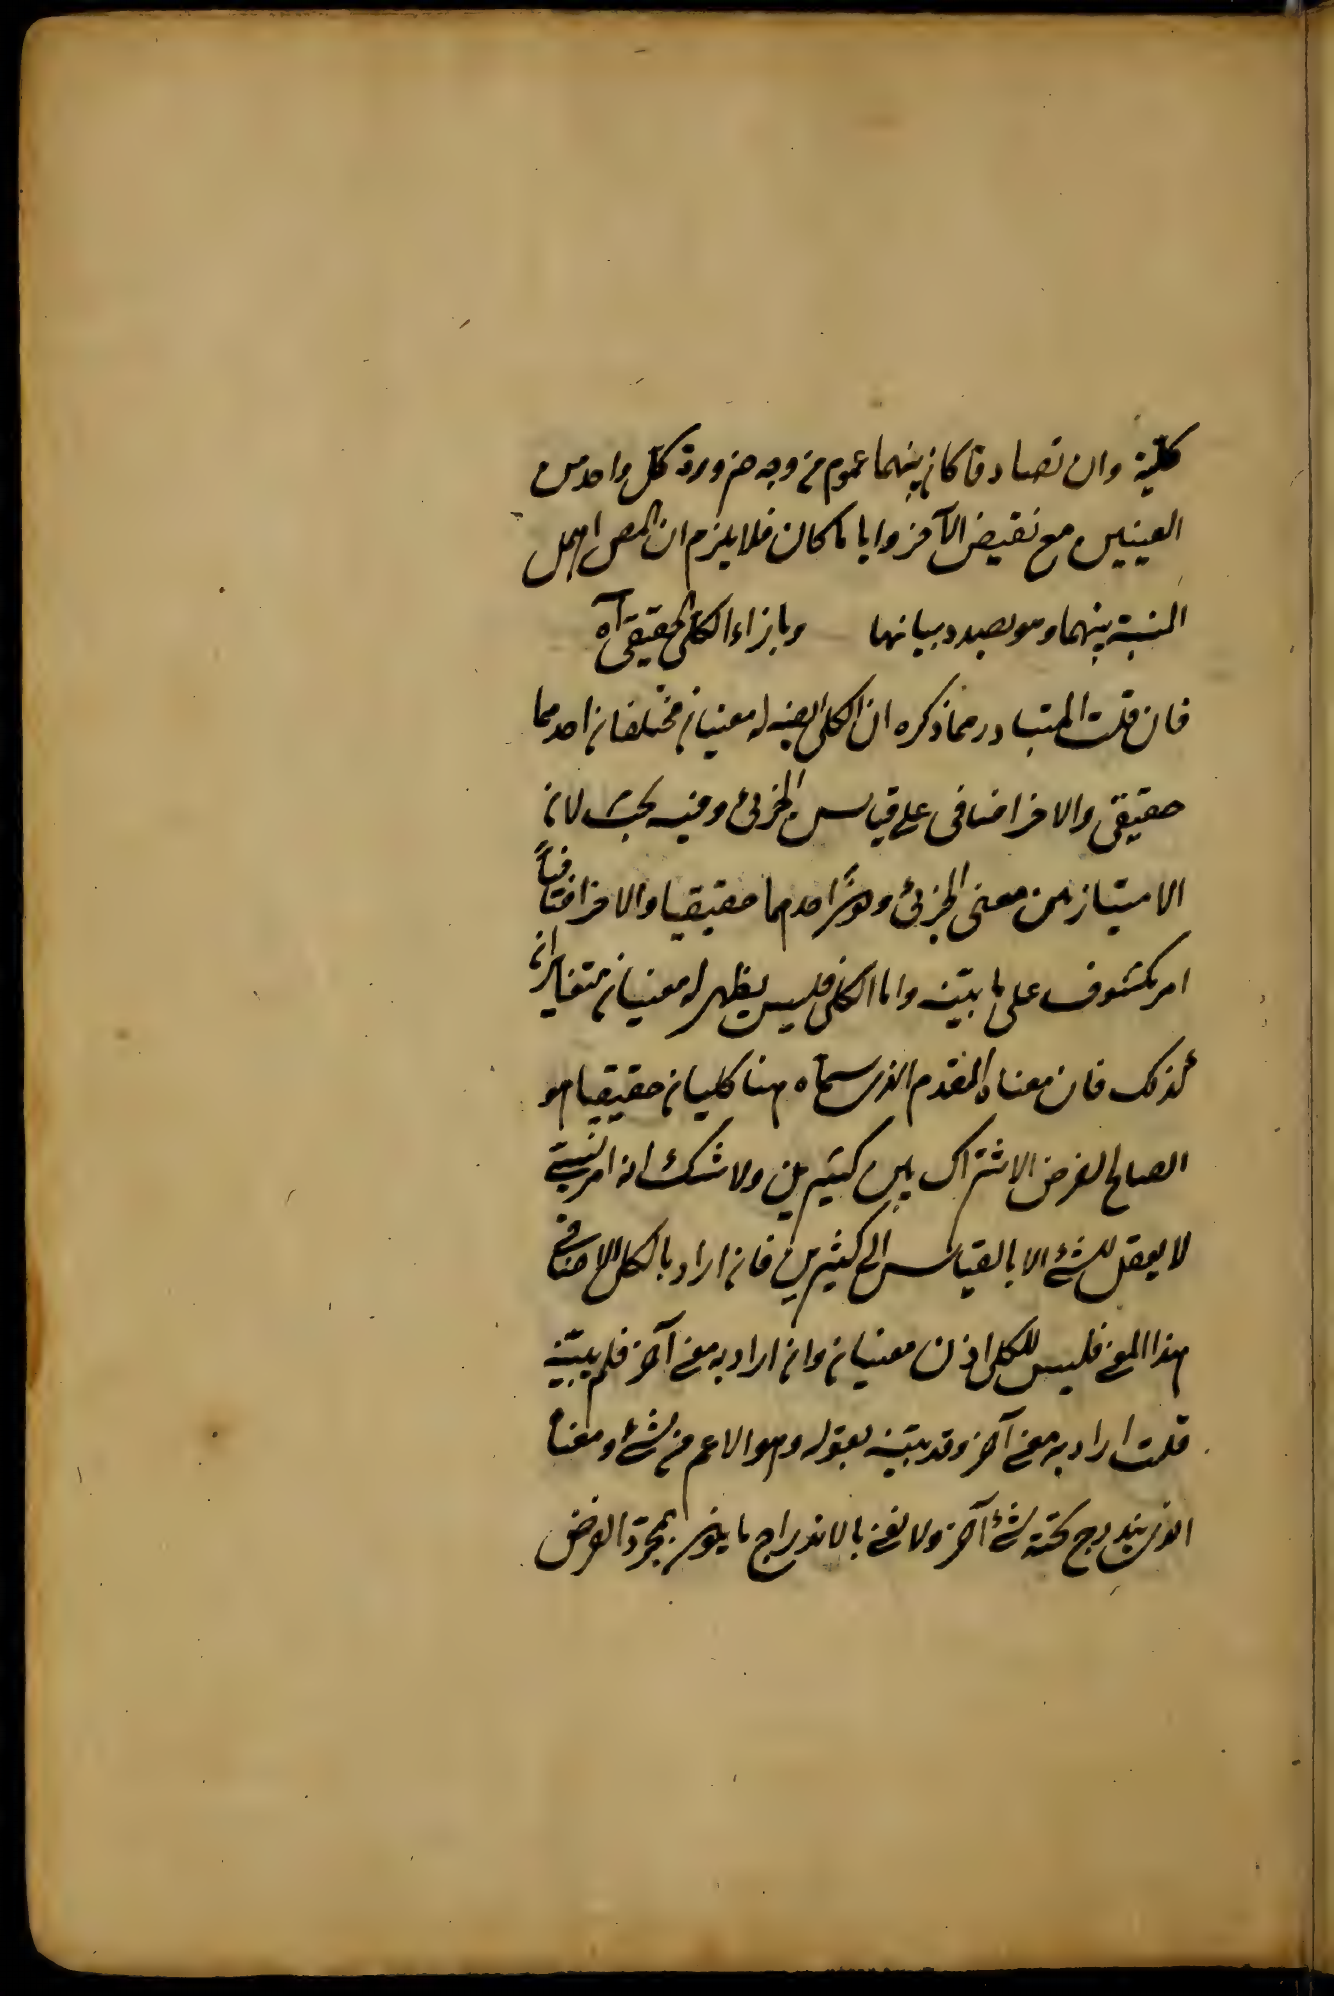 كلية وان تصادقا كان بينهما عموم من وجه ضرورة كل واحد من
العينين مع نقيض الآخر وايا ما كان فلا يلزم ان المص اهمل
النسبة بينهما وهو بصدد بيانها وبازاء الكلى الحقيقى آه
فان قلت المتبادر مما ذكره ان الكلى ايضا له معنيان مختلفان احدهما
حقيقى والاخر اضافى على قياس الجزئى وفيه بحث لان
الامتياز بين معنى الجزئى وكون احدهما حقيقيا والاخر اضافيا
امر مكشوف على ما بينه واما الكلى فليس يظهر له معنيان متغايران
كذلك فان معناه المقدم الذى سماه هنا كليا حقيقيا هو
الصالح لفرض الاشتراك بين كثيرين ولا شك انه امر نسبى
لا يعقل للشئ الا بالقياس الى كثيرين فان اراد بالكلى الاضافى
هذا المعنى فليس للكلى اذن معنيان وان اراد به معنى آخر فلم يبينه
قلت اراد به معنى آخر وقد بينه بقوله وهو الاعم من شئ ومعناه
الذى يندرج تحته شئ آخر ولا نعنى بالاندراج ما يكون بمجرد الفرض